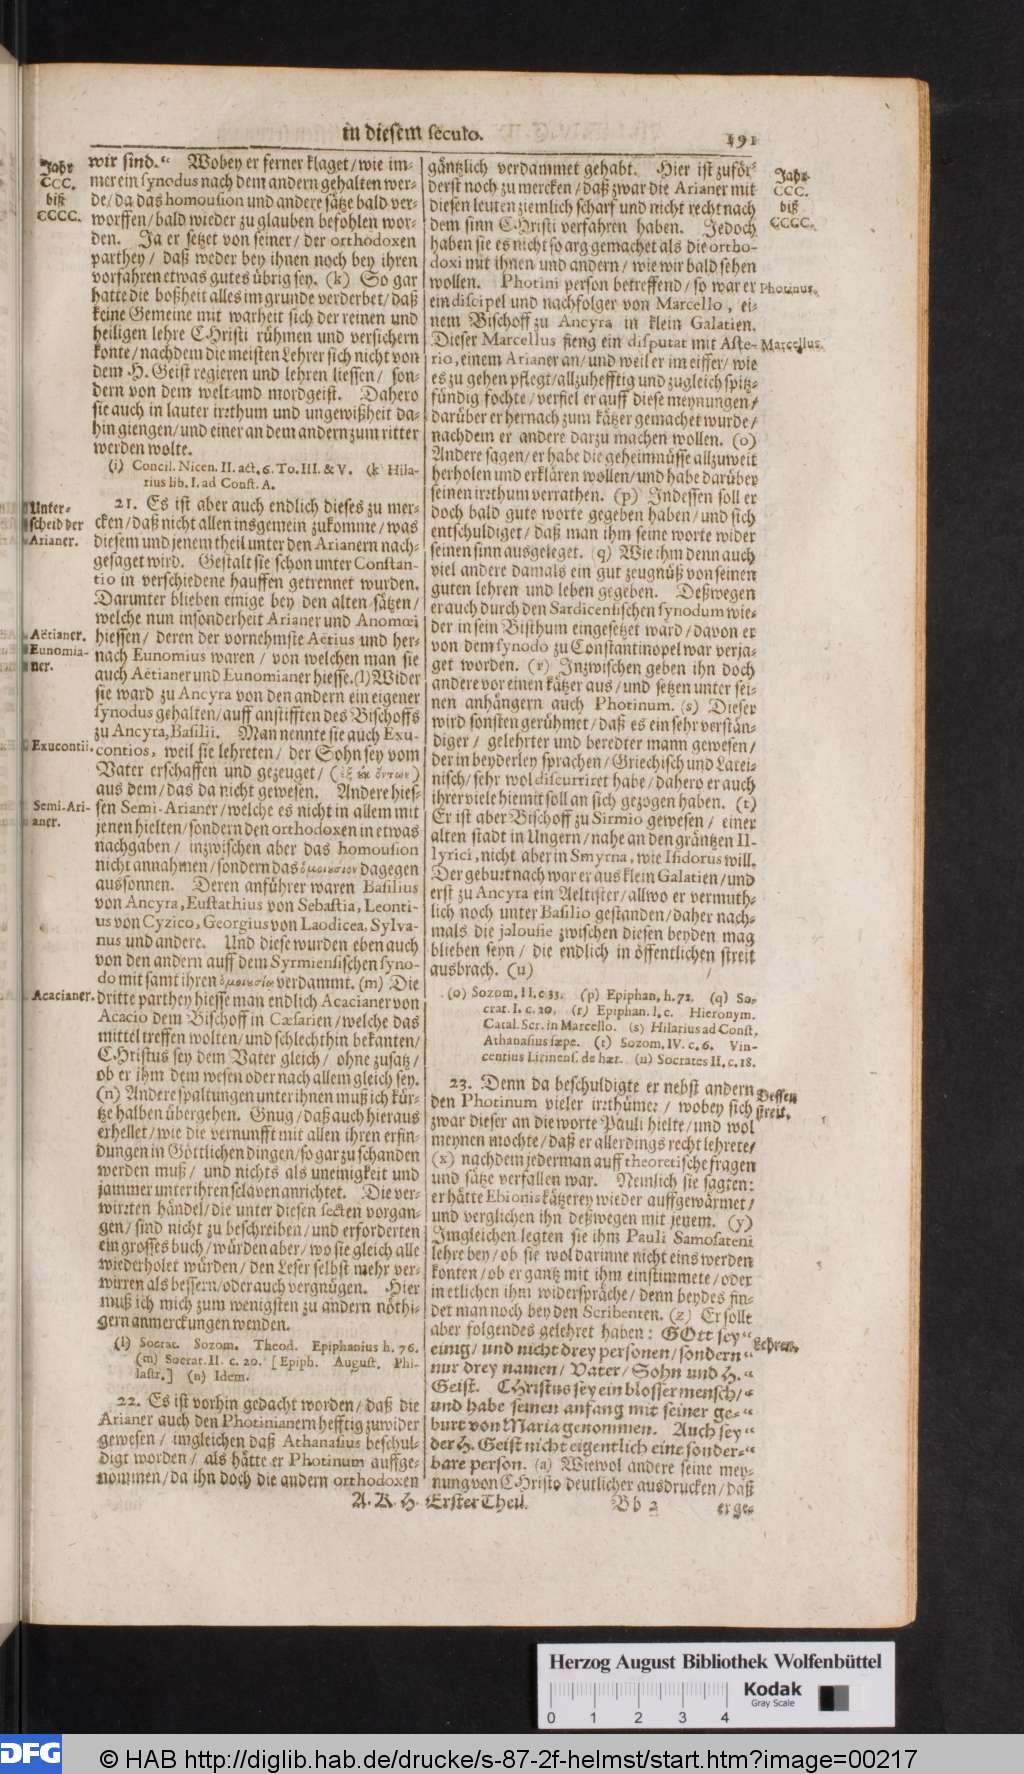 in diesem seculo.
191
Jahr
CCC.
biß
CCCC.
wir sind.“ Wobey er ferner klaget/ wie im-
mer ein synodus nach dem andern gehalten wer-
de/ da das homousion und andere sätze bald ver-
worffen/ bald wieder zu glauben befohlen wor-
den. Ja er setzet von seiner/ der orthodoxen
parthey/ daß weder bey ihnen noch bey ihren
vorfahren etwas gutes übrig sey. (k) So gar
hatte die boßheit alles im grunde verderbet/ daß
keine Gemeine mit warheit sich der reinen und
heiligen lehre CHristi rühmen und versichern
konte/ nachdem die meisten Lehrer sich nicht von
dem H. Geist regieren und lehren liessen/ son-
dern von dem welt- und mordgeist. Dahero
sie auch in lauter irrthum und ungewißheit da-
hin giengen/ und einer an dem andern zum ritter
werden wolte.
(i) Concil. Nicen. II. act. 6. To. III. & V. (k Hila-
rius lib. I. ad Const. A.
Unter-
scheid der
Arianer.
21. Es ist aber auch endlich dieses zu mer-
cken/ daß nicht allen insgemein zukomme/ was
diesem und jenem theil unter den Arianern nach-
gesaget wird. Gestalt sie schon unter Constan-
tio in verschiedene hauffen getrennet wurden.
Darunter blieben einige bey den alten sätzen/
welche nun insonderheit Arianer und Anomœi
hiessen/ deren der vornehmste Aëtius und her-
nach Eunomius waren/ von welchen man sie
auch Aëtianer und Eunomianer hiesse. (l) Wider
sie ward zu Ancyra von den andern ein eigener
synodus gehalten/ auff anstifften des Bischoffs
zu Ancyra, Basilii. Man nennte sie auch Exu-
contios, weil sie lehreten/ der Sohn sey vom
Vater erschaffen und gezeuget/ (ἐξ ἐκ ὄντων)
aus dem/ das da nicht gewesen. Andere hies-
sen Semi-Arianer/ welche es nicht in allem mit
jenen hielten/ sondern den orthodoxen in etwas
nachgaben/ inzwischen aber das homousion
nicht annahmen/ sondern das ὁμοιούσιον dagegen
aussonnen. Deren anführer waren Basilius
von Ancyra, Eustathius von Sebastia, Leonti-
us von Cyzico, Georgius von Laodicea, Sylva-
nus und andere. Und diese wurden eben auch
von den andern auff dem Syrmiensischen syno-
do mit samt ihren ὁμοιουσίῳ verdammt. (m) Die
dritte parthey hiesse man endlich Acacianer von
Acacio dem Bischoff in Cæsarien/ welche das
mittel treffen wolten/ und schlechthin bekanten/
CHristus sey dem Vater gleich/ ohne zusatz/
ob er ihm dem wesen oder nach allem gleich sey.
(n) Andere spaltungen unter ihnen muß ich kür-
tze halben übergehen. Gnug/ daß auch hieraus
erhellet/ wie die vernunfft mit allen ihren erfin-
dungen in Göttlichen dingen/ so gar zu schanden
werden muß/ und nichts als uneinigkeit und
jammer unter ihren sclaven anrichtet. Die ver-
wirrten händel/ die unter diesen secten vorgan-
gen/ sind nicht zu beschreiben/ und erforderten
ein grosses buch/ würden aber/ wo sie gleich alle
wiederholet würden/ den Leser selbst mehr ver-
wirren als bessern/ oder auch vergnügen. Hier
muß ich mich zum wenigsten zu andern nöthi-
gern anmerckungen wenden.
Aëtianer.
Eunomia-
ner.
Exucontii.
Semi-Ari-
aner.
Acacianer.
(l) Socrac. Sozom. Theod. Epiphanius h. 76.
(m) Socrat. II. c. 20. [Epiph. August. Phi-
lastr.] (n) Idem.
22. Es ist vorhin gedacht worden/ daß die
Arianer auch den Photinianern hefftig zuwider
gewesen/ imgleichen daß Athanasius beschul-
digt worden/ als hätte er Photinum auffge-
nommen/ da ihn doch die andern orthodoxen
gäntzlich verdammet gehabt. Hier ist zuför-
derst noch zu mercken/ daß zwar die Arianer mit
diesen leuten ziemlich scharf und nicht recht nach
dem sinn CHristi verfahren haben. Jedoch
haben sie es nicht so arg gemachet als die ortho-
doxi mit ihnen und andern/ wie wir bald sehen
wollen. Photini person betreffend/ so war er
ein discipel und nachfolger von Marcello, ei-
nem Bischoff zu Ancyra in klein Galatien.
Dieser Marcellus fieng ein disputat mit Aste-
rio, einem Arianer an/ und weil er im eiffer/ wie
es zu gehen pflegt/ allzuhefftig und zugleich spitz-
fündig fochte/ verfiel er auff diese meynungen/
darüber er hernach zum kätzer gemachet wurde/
nachdem er andere darzu machen wollen. (o)
Andere sagen/ er habe die geheimnüsse allzuweit
herholen und erklären wollen/ und habe darüber
seinen irrthum verrathen. (p) Indessen soll er
doch bald gute worte gegeben haben/ und sich
entschuldiget/ daß man ihm seine worte wider
seinen sinn ausgeleget. (q) Wie ihm denn auch
viel andere damals ein gut zeugnüß von seinen
guten lehren und leben gegeben. Deßwegen
er auch durch den Sardicensischen synodum wie-
der in sein Bisthum eingesetzet ward/ davon er
von dem synodo zu Constantinopel war verja-
get worden. (r) Inzwischen geben ihn doch
andere vor einen kätzer aus/ und setzen unter sei-
nen anhängern auch Photinum. (s) Dieser
wird sonsten gerühmet/ daß es ein sehr verstän-
diger/ gelehrter und beredter mann gewesen/
der in beyderley sprachen/ Griechisch und Latei-
nisch/ sehr wol discurriret habe/ dahero er auch
ihrer viele hiemit soll an sich gezogen haben. (t)
Er ist aber Bischoff zu Sirmio gewesen/ einer
alten stadt in Ungern/ nahe an den gräntzen Il-
lyrici, nicht aber in Smyrna, wie Isidorus will.
Der geburt nach war er aus klein Galatien/ und
erst zu Ancyra ein Aeltister/ allwo er vermuth-
lich noch unter Basilio gestanden/ daher nach-
mals die jalousie zwischen diesen beyden mag
blieben seyn/ die endlich in öffentlichen streit
ausbrach. (u)
Jahr
CCC.
biß
CCCC.
Photinus.
Marcellus.
(o) Sozom. II. c 33. (p) Epiphan, h. 72. (q) So-
crat. I. c. 20. (r) Epiphan. l. c. Hieronym.
Catal. Scr. in Marcello. (s) Hilarius ad Const.
Athanasius sæpe. (t) Sozom. IV. c. 6. Vin-
centius Lirinens. de hær. (u) Socrates II. c. 18.
23. Denn da beschuldigte er nebst andern
den Photinum vieler irrthümer/ wobey sich
zwar dieser an die worte Pauli hielte/ und wol
meynen mochte/ daß er allerdings recht lehrete/
(x) nachdem jederman auff theoretische fragen
und sätze verfallen war. Nemlich sie sagten:
er hätte Ebionis kätzerey wieder auffgewärmet/
und verglichen ihn deßwegen mit jenem. (y)
Imgleichen legten sie ihm Pauli Samosateni
lehre bey/ ob sie wol darinne nicht eins werden
konten/ ob er gantz mit ihm einstimmete/ oder
in etlichen ihm widerspräche/ denn beydes fin-
det man noch bey den Scribenten. (z) Er sollt
aber folgendes gelehret haben: GOtt sey “
einig/ und nicht drey personen/ sondern “
nur drey namen/ Vater/ Sohn und H. “
Geist. CHristus sey ein blosser mensch/ “
und habe seinen anfang mit seiner ge- “
burt von Maria genommen. Auch sey “
der H. Geist nicht eigentlich eine sonder- “
bare person. (a) Wiewol andere seine mey-
nung von CHristo deutlicher ausdrucken/ daß
Dessen
streit.
Lehren.
A. K. H. Erster Theil.
Bb 2
erge-
Herzog August Bibliothek Wolfenbüttel
Kodak
Gray Scale
0 1 2 3 4
DFG
© HAB http://diglib.hab.de/drucke/s-87-2f-helmst/start.htm?image=00217